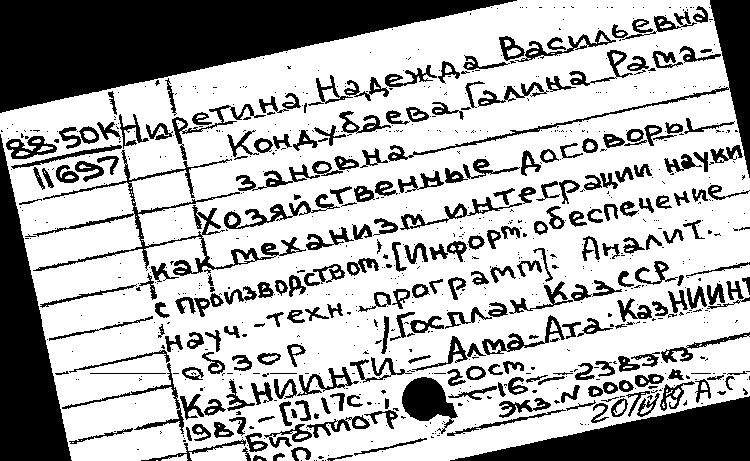 88.50К
11697
Ниретина, Надежда Васильевна
Кондубаева, Галина Рама-
зановна.
Хозяйственные договоры
как механизм интеграции науки
с производством: [Информ. обеспечение
науч.-техн. программ]: Аналит.
обзор /Госплан КазССР,
КазНИИНТИ. - Алма-Ата: КазНИИНТИ
1987. - [1], 17с.; 20см.
Библиогр. с.16. - 238экз.
Экз. N 000004.